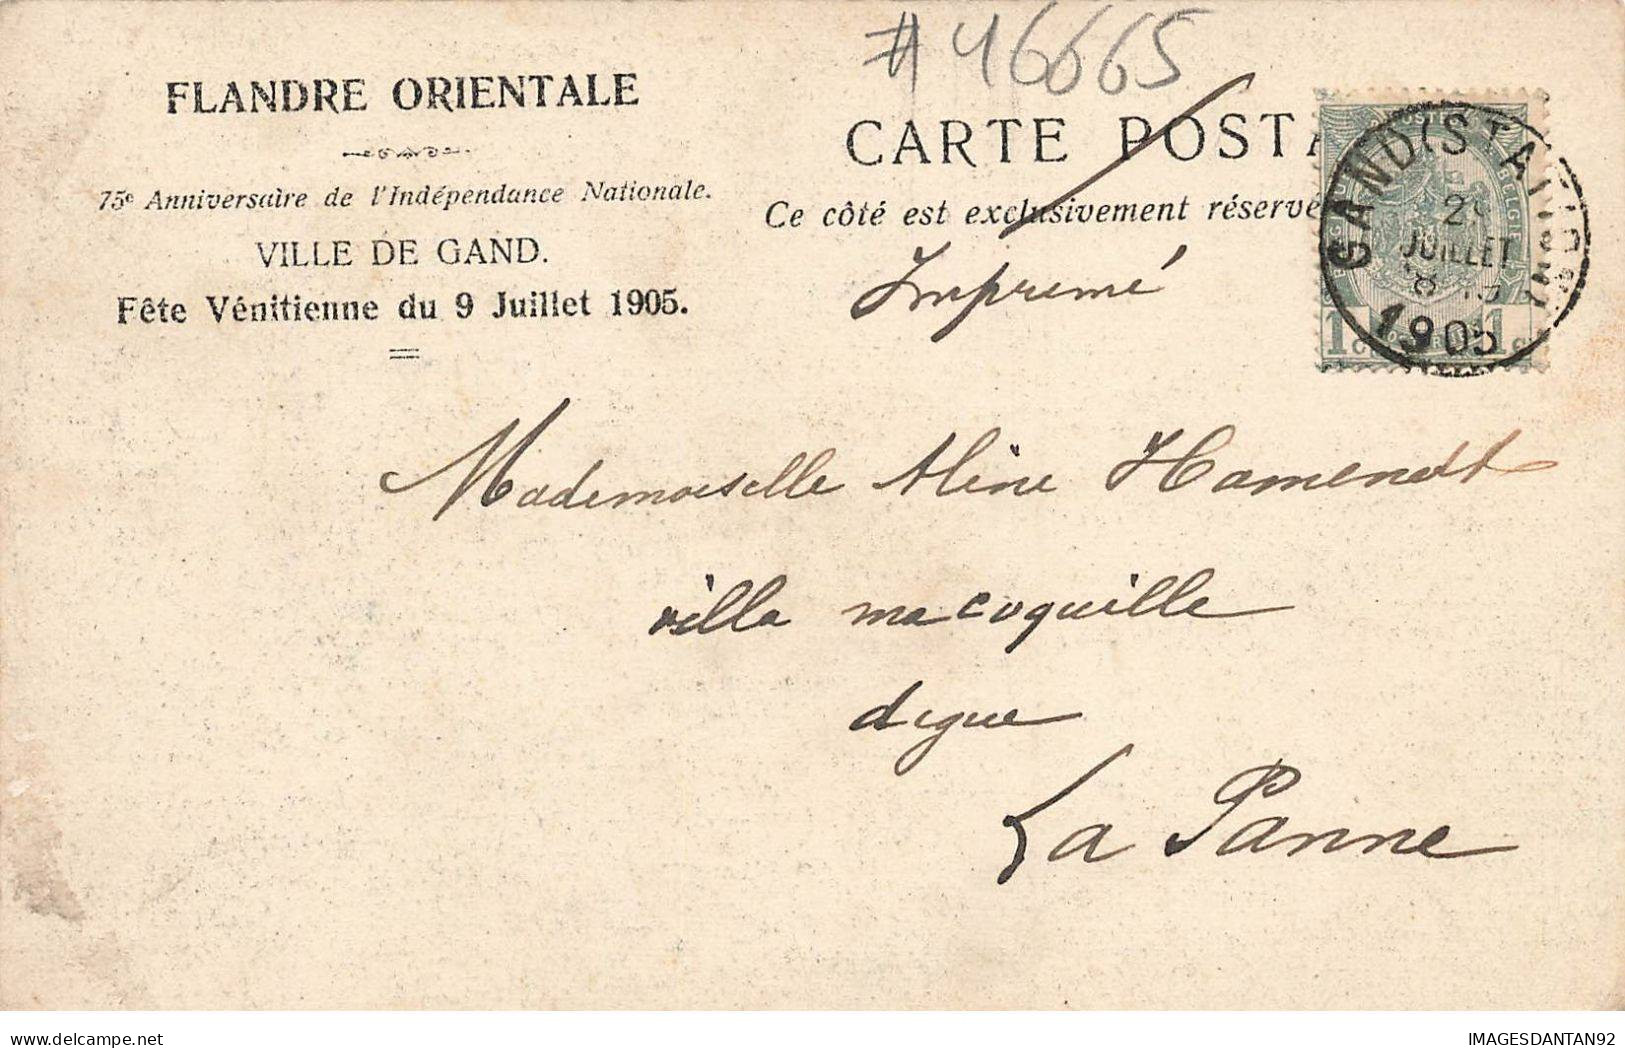 # 46665
FLANDRE ORIENTALE
75e Anniversaire de l'Indépendance Nationale.
VILLE DE GAND.
Fête Vénitienne du 9 Juillet 1905.
CARTE POSTA
Ce côté est exclusivement réservé
Imprimé
GAND (STATION)
JUILLET
1905
1 C 1 C
Mademoiselle Aline Hamendt
villa ma coquille
digue
La Panne
IMAGESDANTAN92